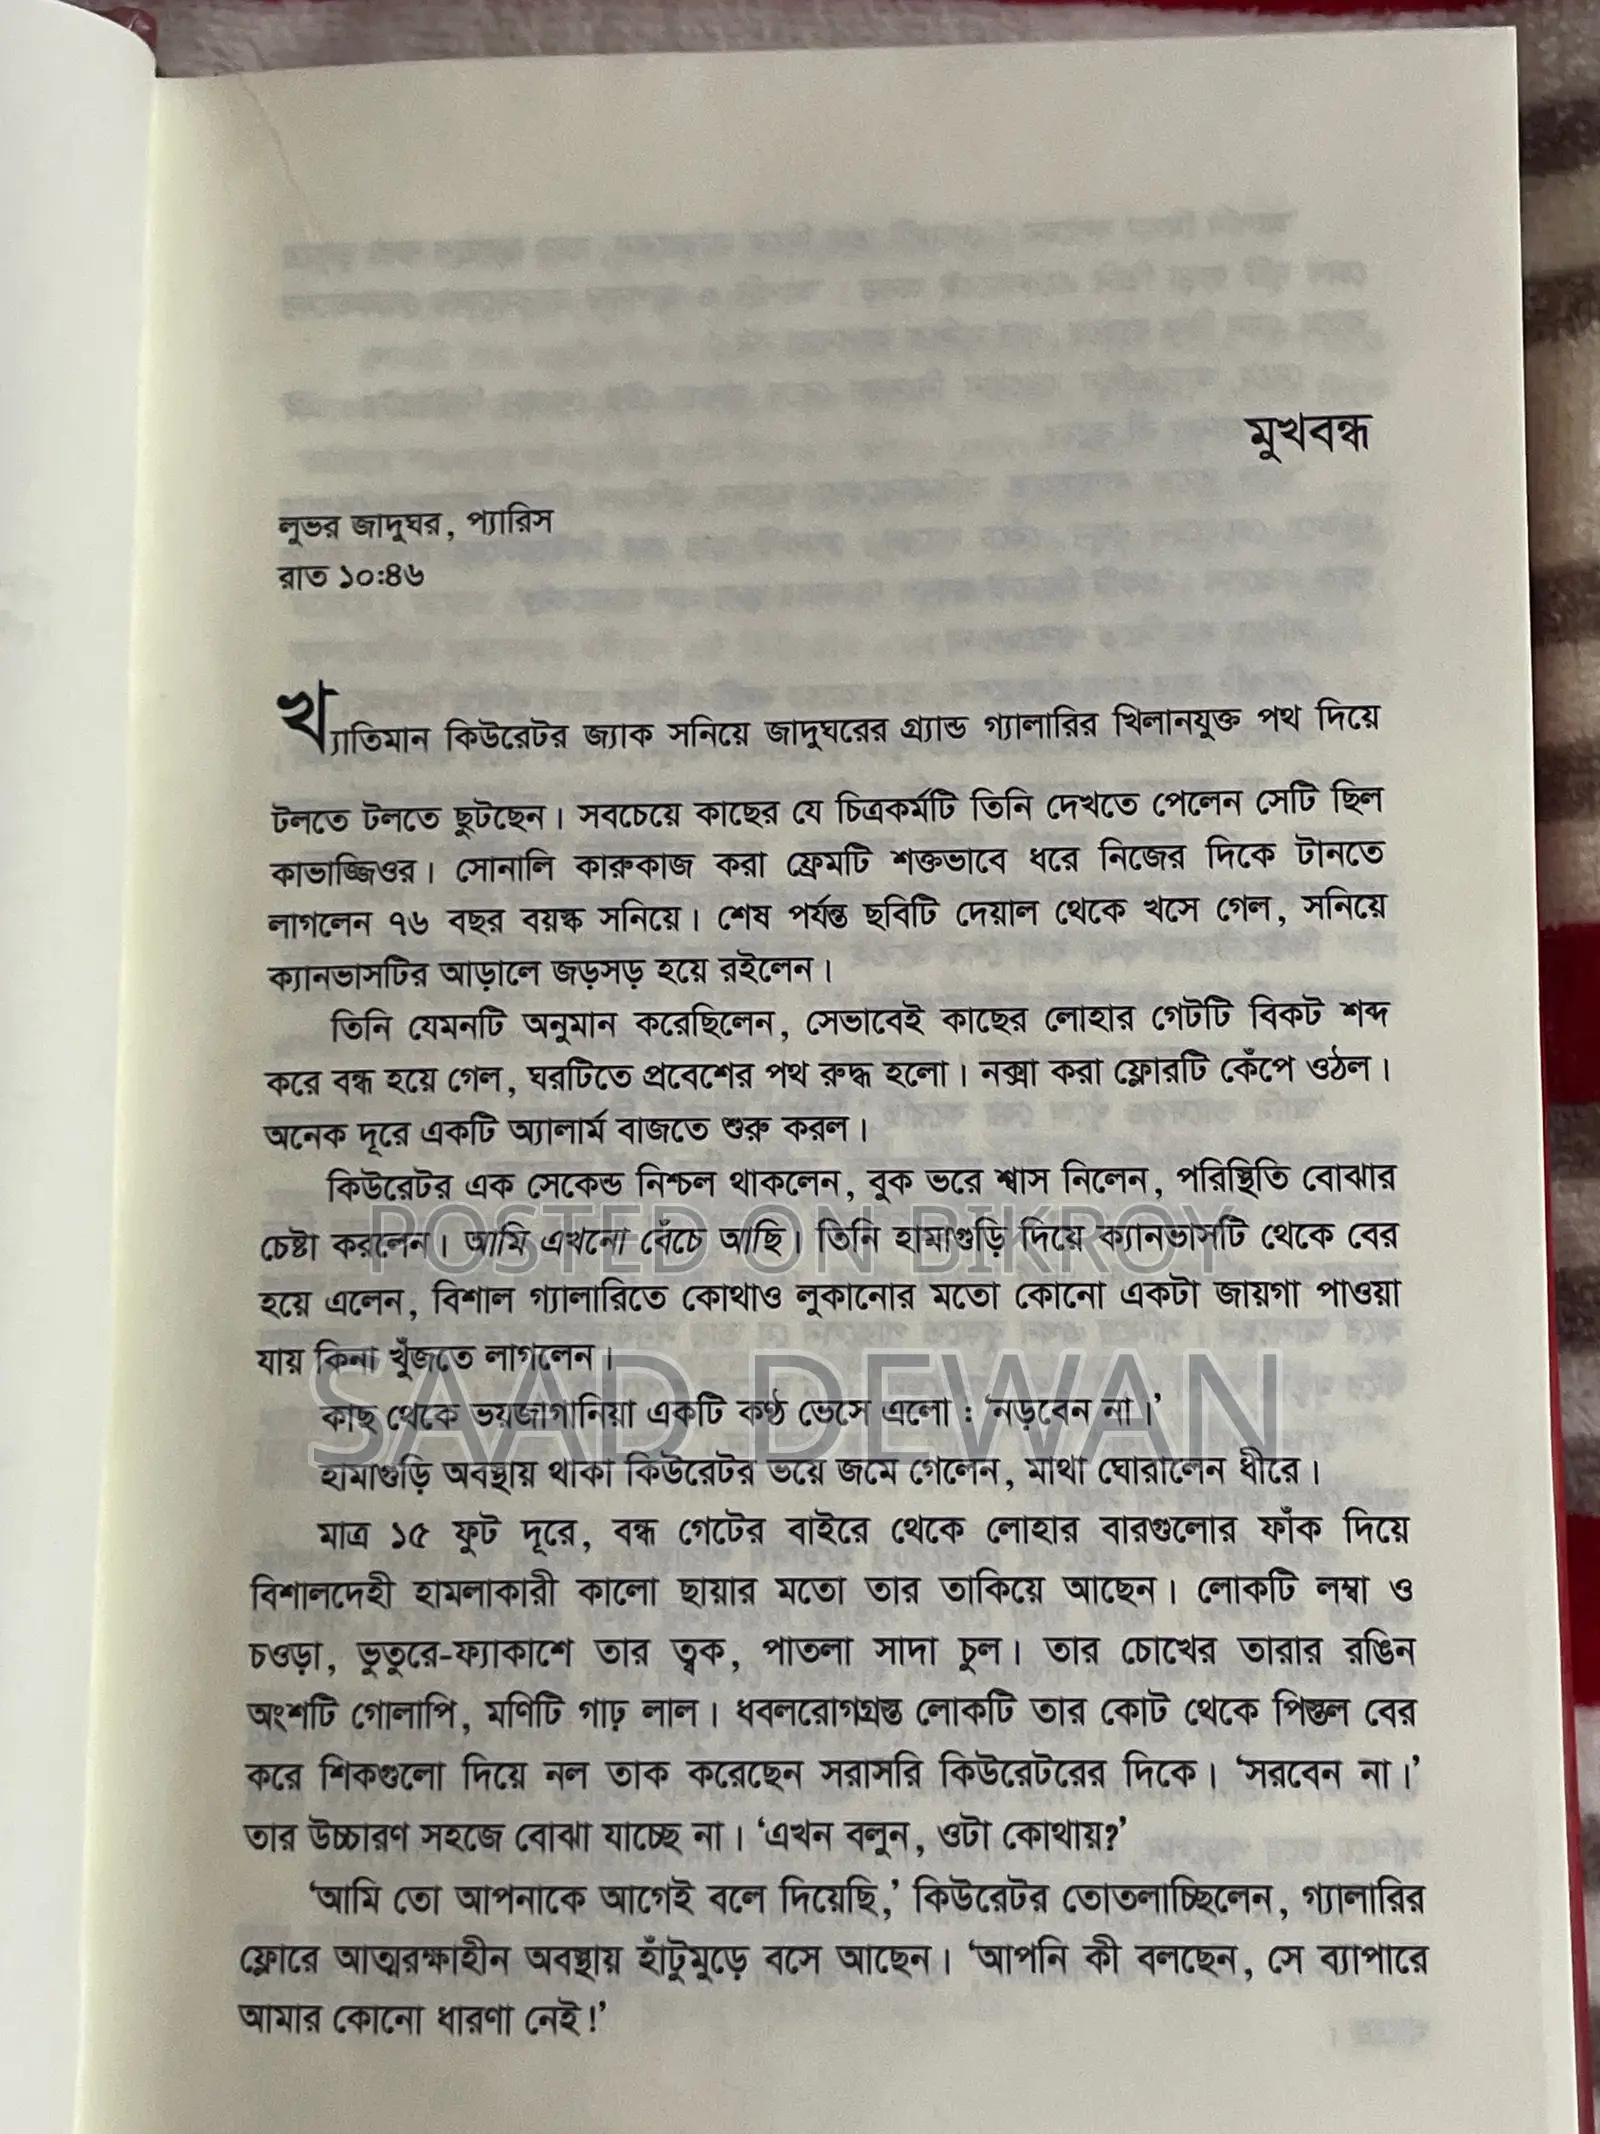 মুখবন্ধ
লুভর জাদুঘর, প্যারিস
রাত ১০:৪৬
খ্যাতিমান কিউরেটর জ্যাক সনিয়ে জাদুঘরের গ্র্যান্ড গ্যালারির খিলানযুক্ত পথ দিয়ে
টলতে টলতে ছুটছেন। সবচেয়ে কাছের যে চিত্রকর্মটি তিনি দেখতে পেলেন সেটি ছিল
কাভাজ্জিওর। সোনালি কারুকাজ করা ফ্রেমটি শক্তভাবে ধরে নিজের দিকে টানতে
লাগলেন ৭৬ বছর বয়স্ক সনিয়ে। শেষ পর্যন্ত ছবিটি দেয়াল থেকে খসে গেল, সনিয়ে
ক্যানভাসটির আড়ালে জড়সড় হয়ে রইলেন।
তিনি যেমনটি অনুমান করেছিলেন, সেভাবেই কাছের লোহার গেটটি বিকট শব্দ
করে বন্ধ হয়ে গেল, ঘরটিতে প্রবেশের পথ রুদ্ধ হলো। নক্সা করা ফ্লোরটি কেঁপে ওঠল।
অনেক দূরে একটি অ্যালার্ম বাজতে শুরু করল।
কিউরেটর এক সেকেন্ড নিশ্চল থাকলেন, বুক ভরে শ্বাস নিলেন, পরিস্থিতি বোঝার
চেষ্টা করলেন। আমি এখনো বেঁচে আছি। তিনি হামাগুড়ি দিয়ে ক্যানভাসটি থেকে বের
POSTED ON BIKROY
হয়ে এলেন, বিশাল গ্যালারিতে কোথাও লুকানোর মতো কোনো একটা জায়গা পাওয়া
যায় কিনা খুঁজতে লাগলেন।
SAAD DEWAN
কাছ থেকে ভয়জাগানিয়া একটি কণ্ঠ ভেসে এলো : ‘নড়বেন না।’
হামাগুড়ি অবস্থায় থাকা কিউরেটর ভয়ে জমে গেলেন, মাথা ঘোরালেন ধীরে।
মাত্র ১৫ ফুট দূরে, বন্ধ গেটের বাইরে থেকে লোহার বারগুলোর ফাঁক দিয়ে
বিশালদেহী হামলাকারী কালো ছায়ার মতো তার তাকিয়ে আছেন। লোকটি লম্বা ও
চওড়া, ভুতুরে-ফ্যাকাশে তার ত্বক, পাতলা সাদা চুল। তার চোখের তারার রঙিন
অংশটি গোলাপি, মণিটি গাঢ় লাল। ধবলরোগগ্রস্ত লোকটি তার কোট থেকে পিস্তল বের
করে শিকগুলো দিয়ে নল তাক করেছেন সরাসরি কিউরেটরের দিকে। ‘সরবেন না।’
তার উচ্চারণ সহজে বোঝা যাচ্ছে না। ‘এখন বলুন, ওটা কোথায়?’
‘আমি তো আপনাকে আগেই বলে দিয়েছি,’ কিউরেটর তোতলাচ্ছিলেন, গ্যালারির
ফ্লোরে আত্মরক্ষাহীন অবস্থায় হাঁটুমুড়ে বসে আছেন। ‘আপনি কী বলছেন, সে ব্যাপারে
আমার কোনো ধারণা নেই!’